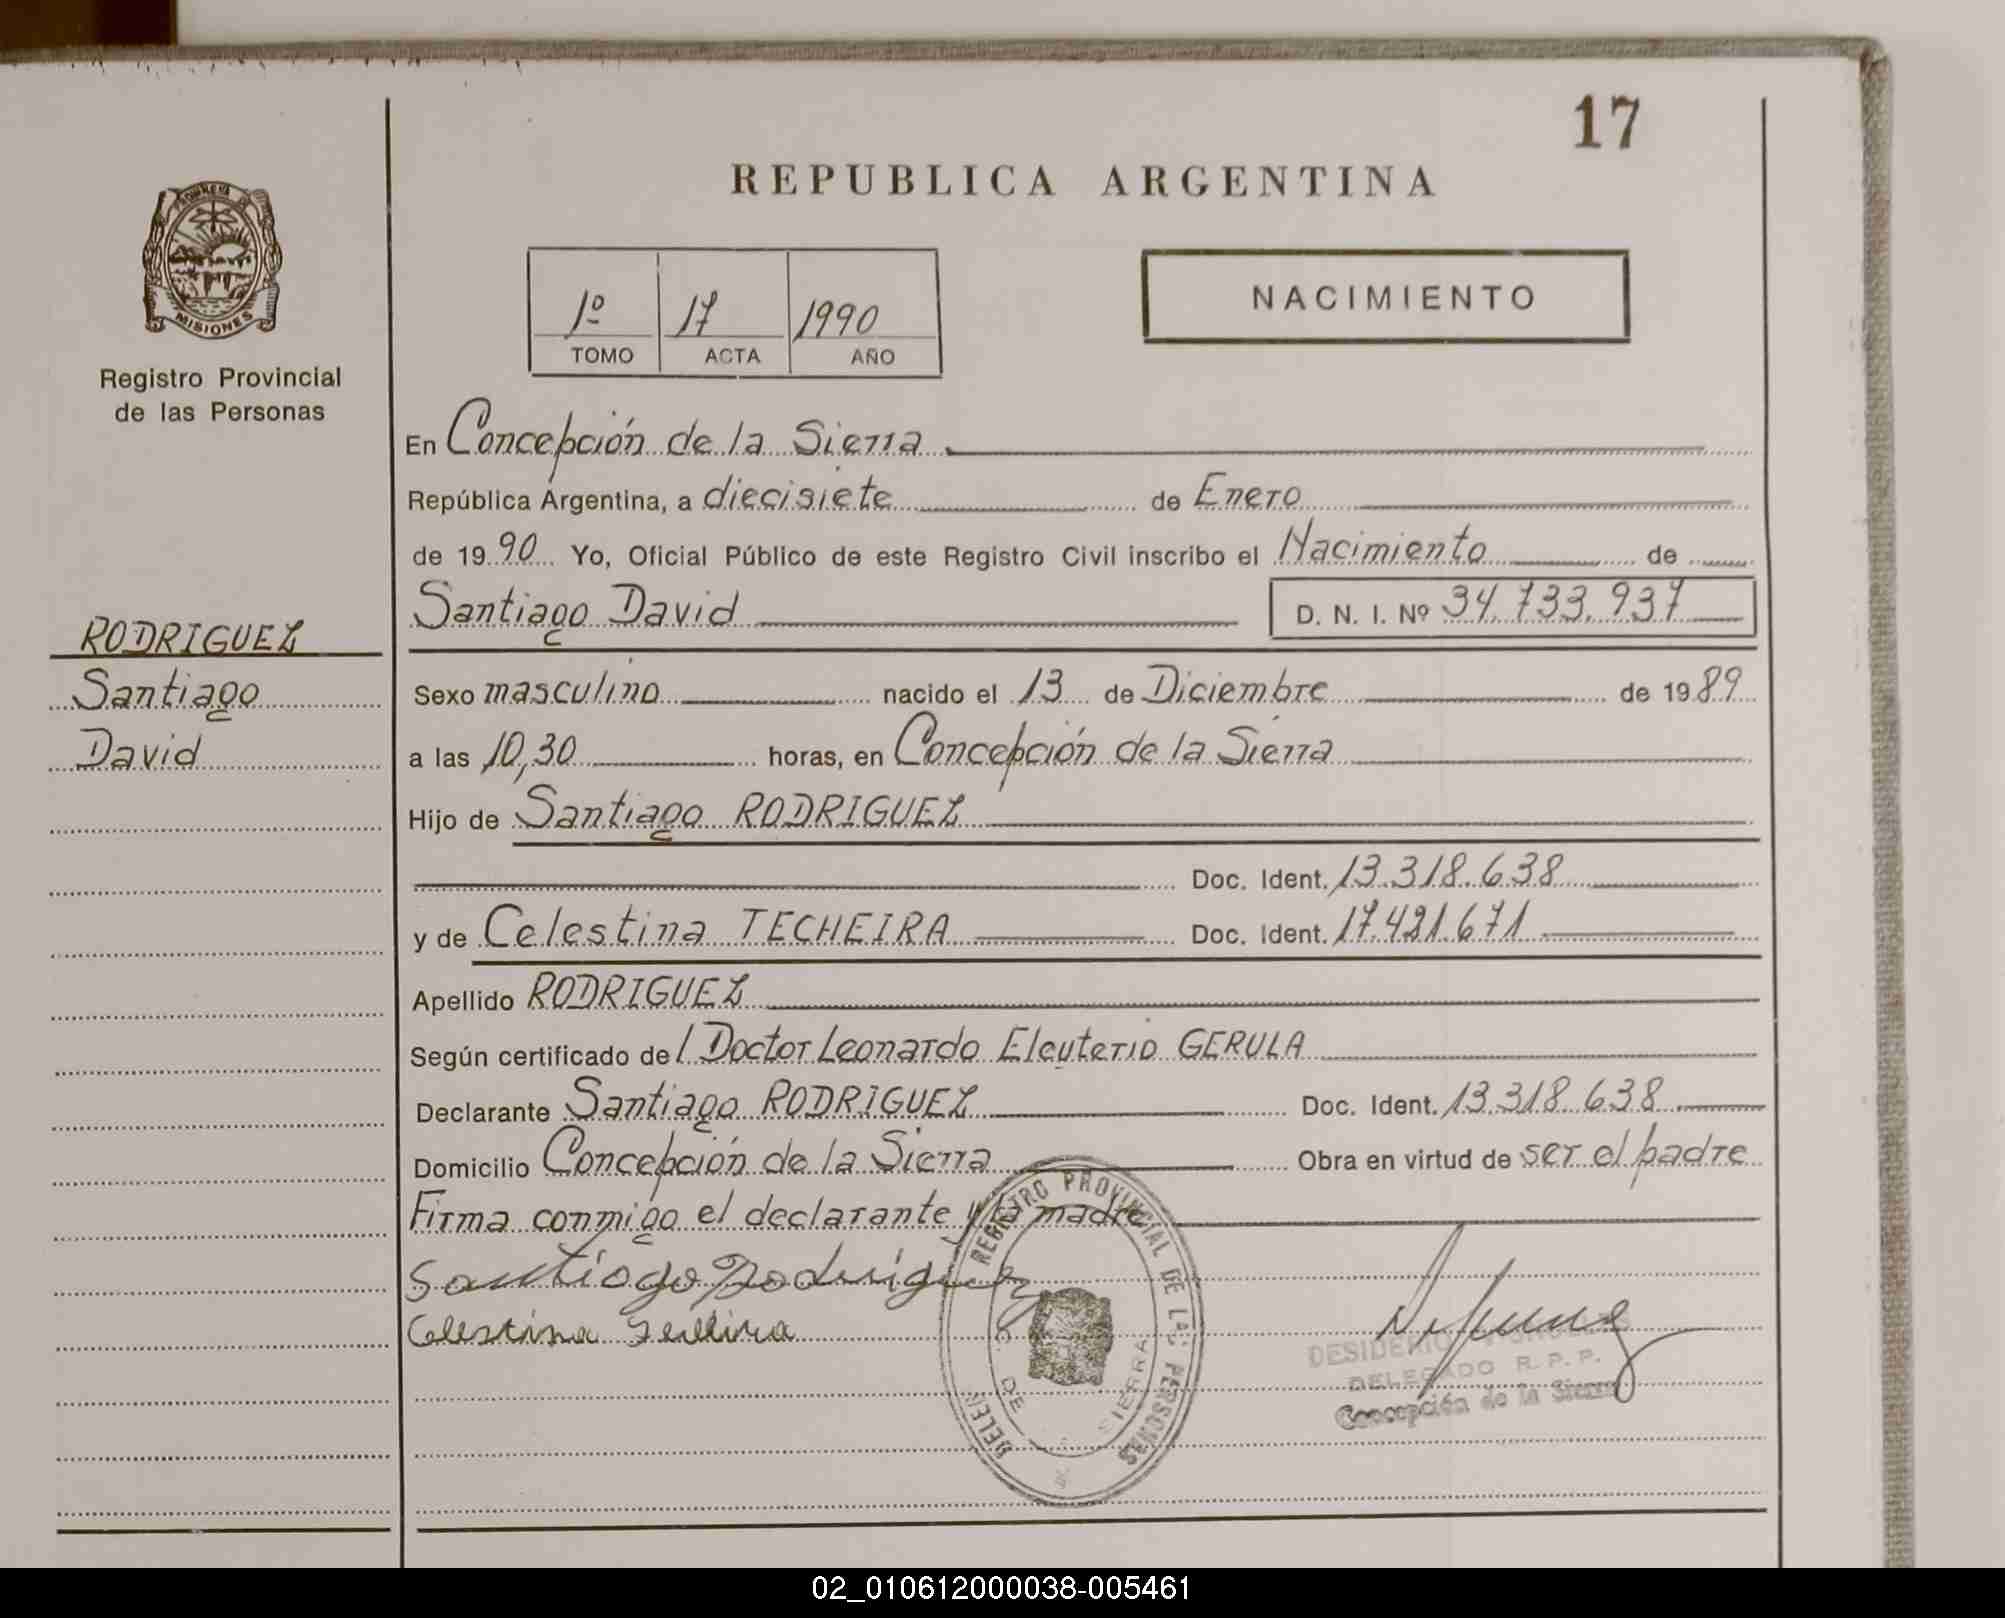 17
REPUBLICA ARGENTINA
MISIONES
Registro Provincial
de las Personas
1º 17 1990
TOMO ACTA AÑO
NACIMIENTO
En Concepción de la Sierra
República Argentina, a diecisiete de Enero
de 1990 Yo, Oficial Público de este Registro Civil inscribo el Nacimiento de
Santiago David D. N. I. Nº 34.733.937
RODRIGUEZ
Santiago
David
Sexo masculino nacido el 13 de Diciembre de 1989
a las 10,30 horas, en Concepción de la Sierra
Hijo de Santiago RODRIGUEZ
Doc. Ident. 13.318.638
y de Celestina TECHEIRA Doc. Ident. 17.421.671
Apellido RODRIGUEZ
Según certificado del Doctor Leonardo Eleuterio GERULA
Declarante Santiago RODRIGUEZ Doc. Ident. 13.318.638
Domicilio Concepción de la Sierra Obra en virtud de ser el padre
Firma conmigo el declarante y la madre
Santiago Rodriguez
Celestina
REGISTRO PROVINCIAL DE LAS PERSONAS
DE SIERRA
DELEGADO R. P. P.
Concepción de la Sierra
02_010612000038-005461